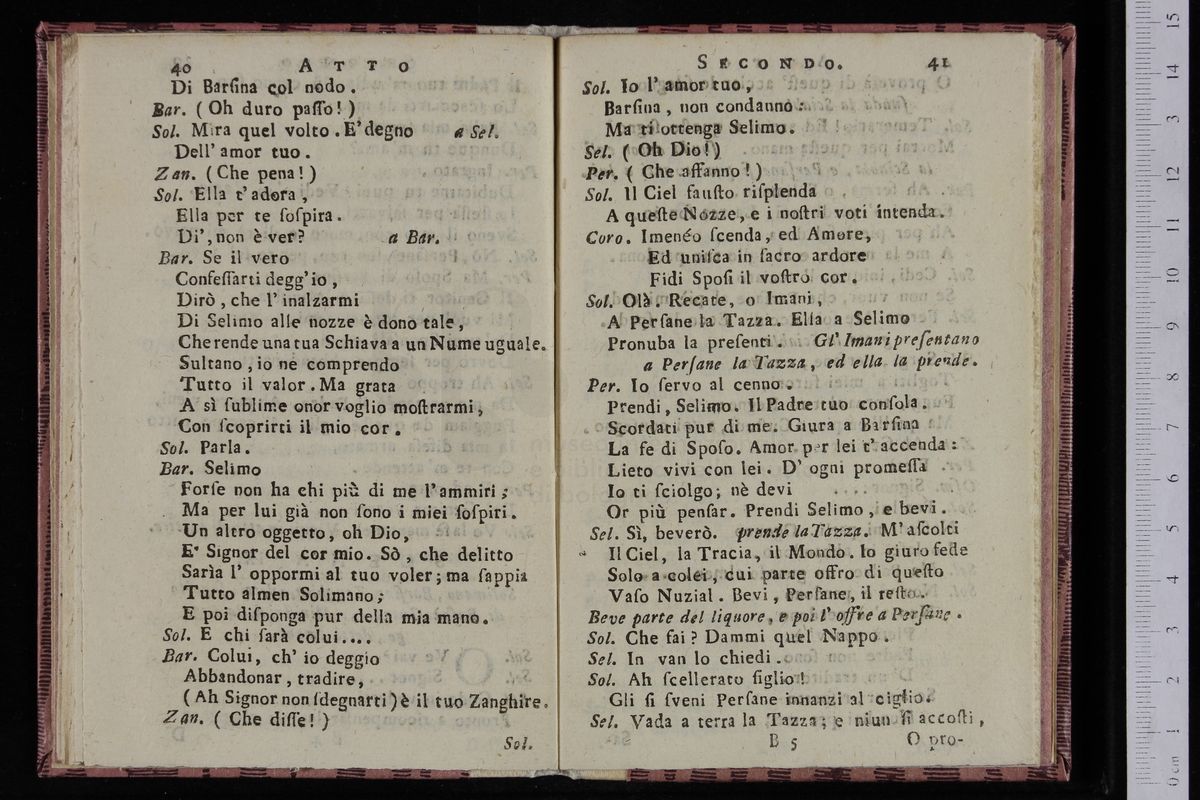 40 ATTO
Di Barſina col nodo.
Bar. (Oh duro paſſo!)
Sol. Mira quel volto. E' degno a Sel.
Dell' amor tuo.
Zan. (Che pena!)
Sol. Ella t' adora,
Ella per te ſoſpira.
Di', non è ver? a Bar.
Bar. Se il vero
Confeſſarti degg' io,
Dirò, che l' inalzarmi
Di Selimo alle nozze è dono tale,
Che rende una tua Schiava a un Nume uguale.
Sultano, io ne comprendo
Tutto il valor. Ma grata
A sì ſublime onor voglio moſtrarmi,
Con ſcoprirti il mio cor.
Sol. Parla.
Bar. Selimo
Forſe non ha chi più di me l' ammiri;
Ma per lui già non ſono i miei ſoſpiri.
Un altro oggetto, oh Dio,
E' Signor del cor mio. Sò, che delitto
Sarìa l' oppormi al tuo voler; ma ſappia
Tutto almen Solimano;
E poi diſponga pur della mia mano.
Sol. E chi ſarà colui....
Bar. Colui, ch' io deggio
Abbandonar, tradire,
(Ah Signor non ſdegnarti) è il tuo Zanghire.
Zan. (Che diſſe!)
Sol.
SECONDO. 41
Sol. Io l' amor tuo,
Barſina, non condanno:
Ma ti ottenga Selimo.
Sel. (Oh Dio!)
Per. (Che affanno!)
Sol. Il Ciel fauſto riſplenda
A queſte Nozze, e i noſtri voti intenda.
Coro. Imenéo ſcenda, ed Amore,
Ed uniſca in ſacro ardore
Fidi Spoſi il voſtro cor.
Sol. Olà. Recate, o Imani,
A Perſane la Tazza. Ella a Selimo
Pronuba la preſenti. Gl' Imani preſentano
a Perſane la Tazza, ed ella la prende.
Per. Io ſervo al cenno.
Prendi, Selimo. Il Padre tuo conſola.
Scordati pur di me. Giura a Barſina
La fe di Spoſo. Amor per lei t' accenda:
Lieto vivi con lei. D' ogni promeſſa
Io ti ſciolgo; nè devi
Or più penſar. Prendi Selimo, e bevi.
Sel. Sì, beverò. prende la Tazza. M' aſcolti
Il Ciel, la Tracia, il Mondo. Io giuro fede
Solo a colei, cui parte offro di queſto
Vaſo Nuzial. Bevi, Perſane, il reſto.
Beve parte del liquore, e poi l' offre a Perſane.
Sol. Che fai? Dammi quel Nappo.
Sel. In van lo chiedi.
Sol. Ah ſcellerato figlio!
Gli ſi ſveni Perſane innanzi al ciglio.
Sel. Vada a terra la Tazza; e niun ſi accoſti,
B 5 O pro-
15
14
13
12
11
10
9
8
7
6
5
4
3
2
1
0 cm